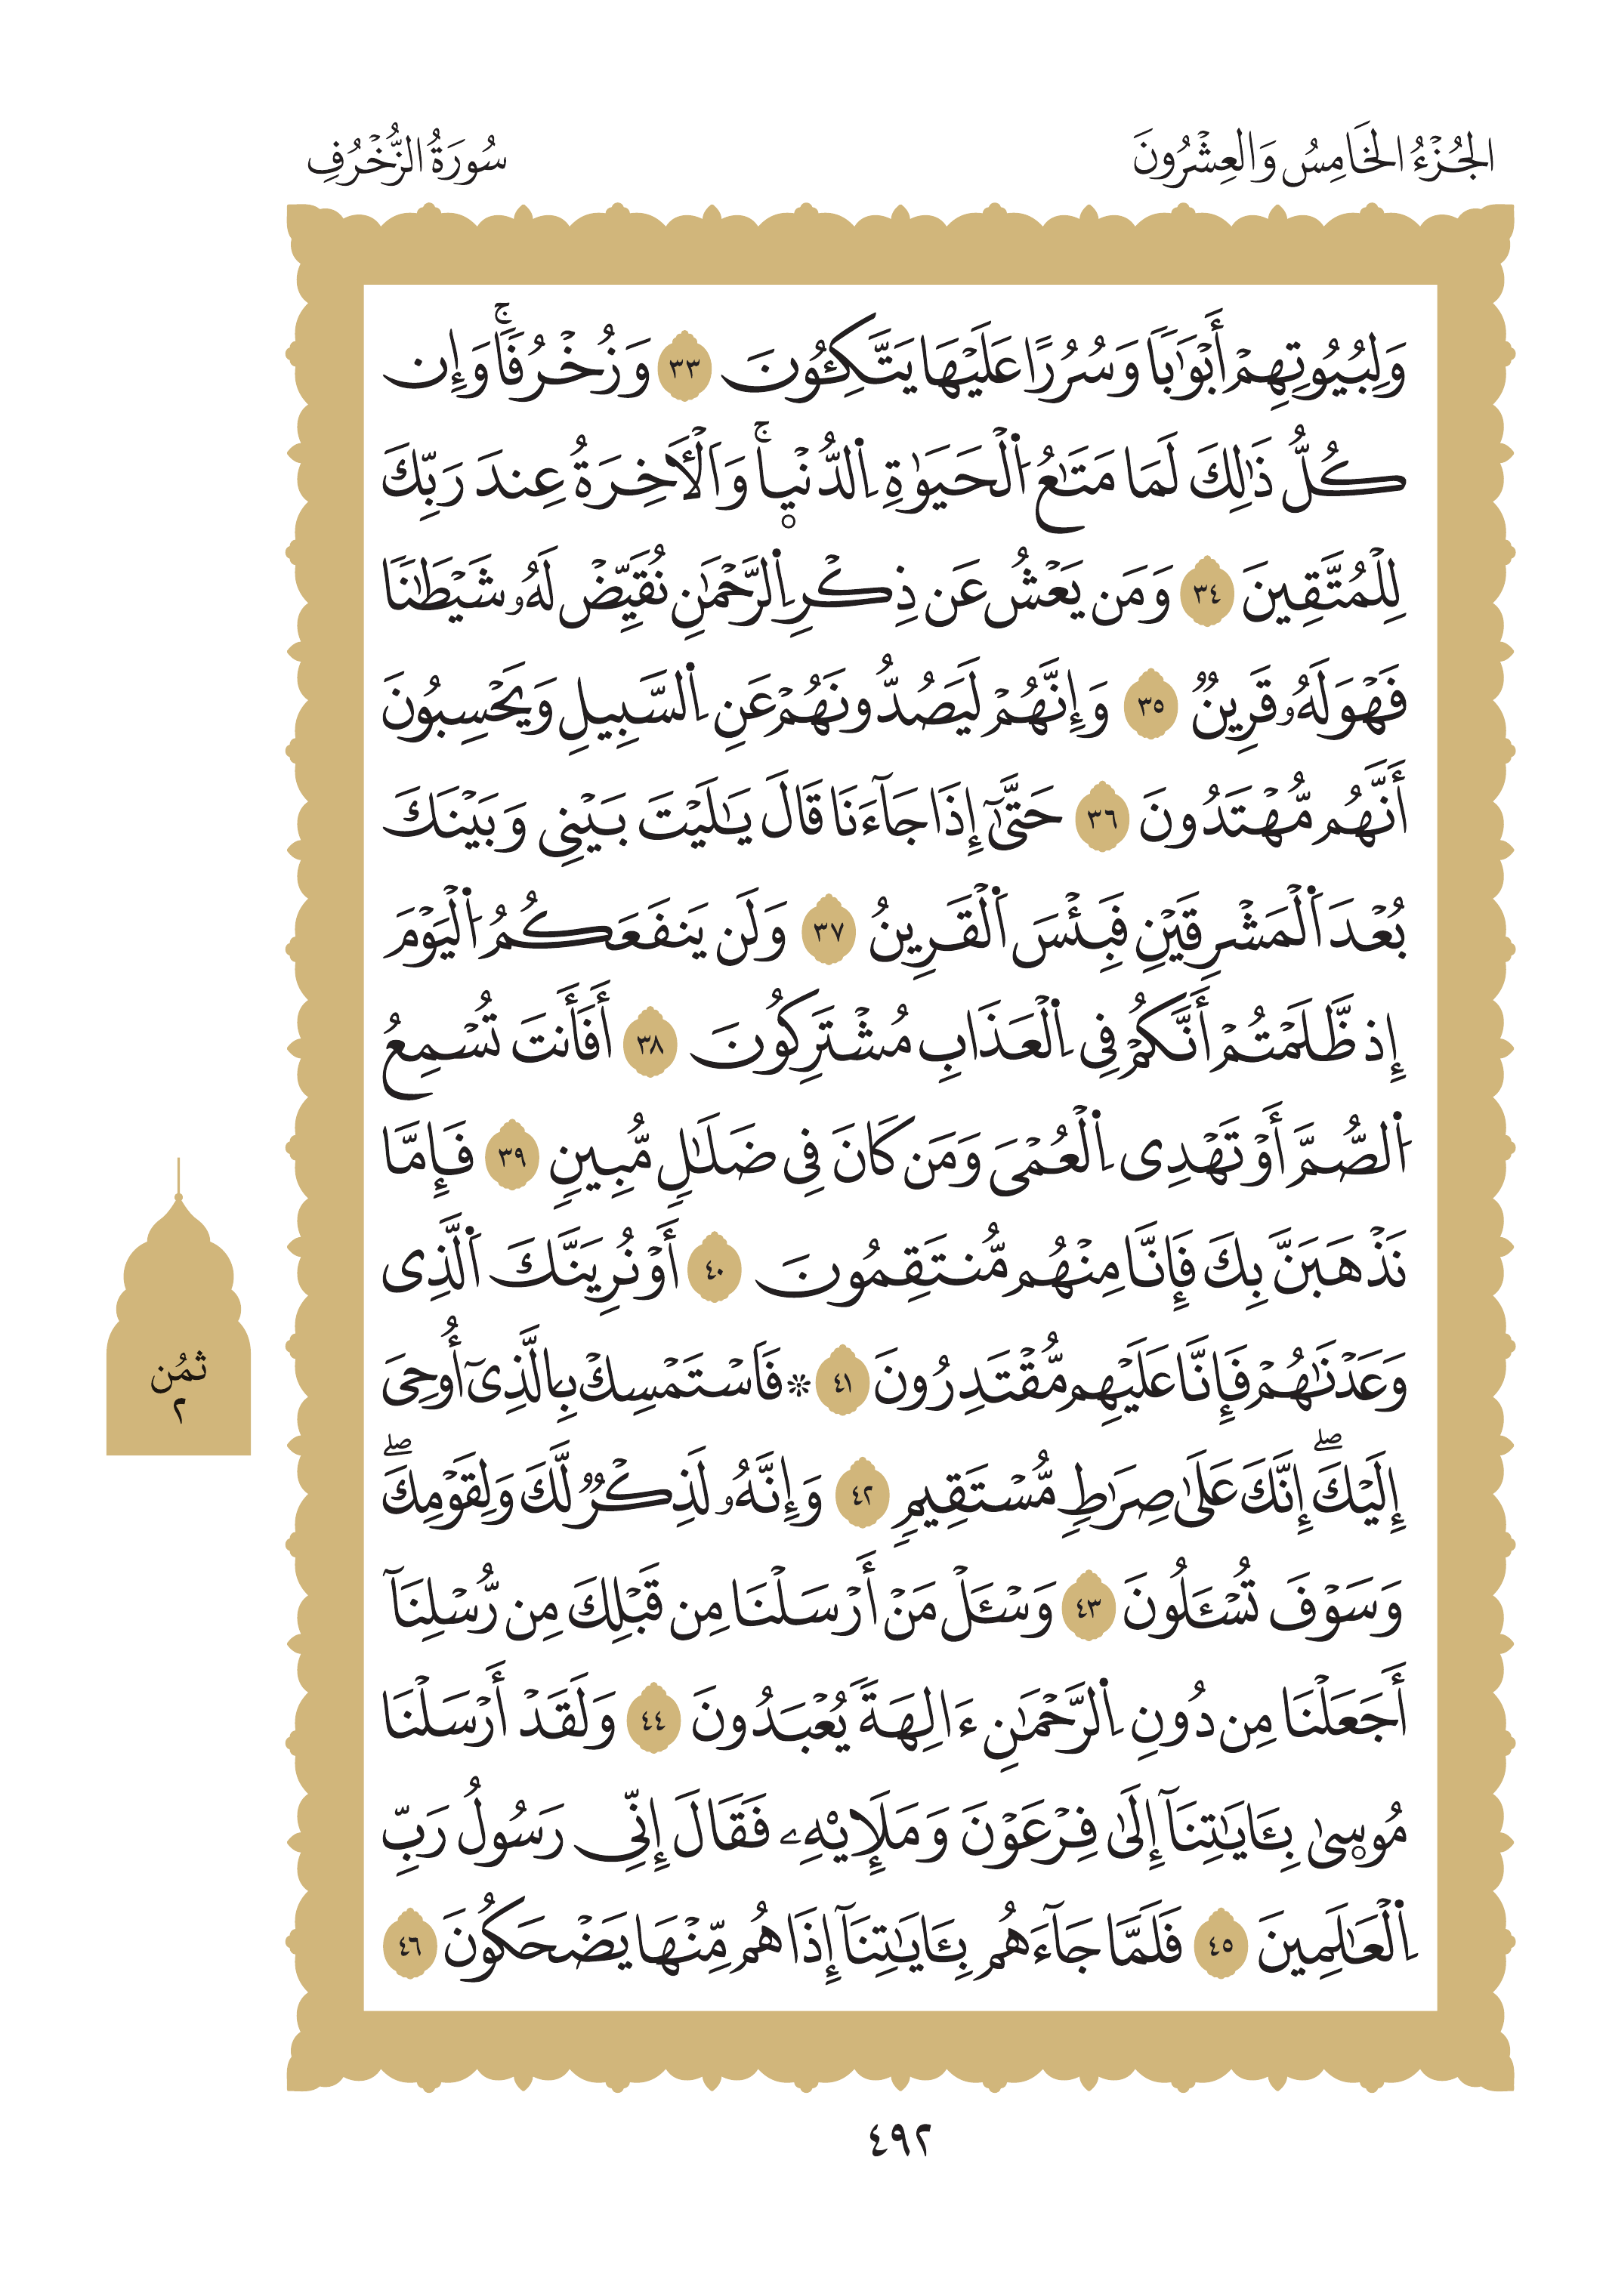 الجُزْءُ الخَامِسُ وَالعِشْرُونَ
سُورَةُ الزُّخْرُفِ
وَلِبُيُوتِهِمْ أَبْوَٰبًا وَسُرُرًا عَلَيْهَا يَتَّكِـُٔونَ ٣٣ وَزُخْرُفًاۚ وَإِن
كُلُّ ذَٰلِكَ لَمَا مَتَٰعُ اَ۬لْحَيَوٰةِ اِ۬لدُّنْي۪اۚ وَالَاخِرَةُ عِندَ رَبِّكَ
لِلْمُتَّقِينَ ٣٤ وَمَن يَعْشُ عَن ذِكْرِ اِ۬لرَّحْمَٰنِ نُقَيِّضْ لَهُۥ شَيْطَٰنًا
فَهْوَ لَهُۥ قَرِينٌ ٣٥ وَإِنَّهُمْ لَيَصُدُّونَهُمْ عَنِ اِ۬لسَّبِيلِ وَيَحْسِبُونَ
أَنَّهُم مُّهْتَدُونَ ٣٦ حَتَّىٰٓ إِذَا جَآءَنَا قَالَ يَٰلَيْتَ بَيْنِى وَبَيْنَكَ
بُعْدَ اَ۬لْمَشْرِقَيْنِ فَبِئْسَ اَ۬لْقَرِينُ ٣٧ وَلَن يَنفَعَكُمُ اُ۬لْيَوْمَ
إِذ ظَّلَمْتُمْ أَنَّكُمْ فِى اِ۬لْعَذَابِ مُشْتَرِكُونَ ٣٨ أَفَأَنتَ تُسْمِعُ
اُ۬لصُّمَّ أَوْ تَهْدِى اِ۬لْعُمْىَ وَمَن كَانَ فِى ضَلَٰلٍ مُّبِينٍ ٣٩ فَإِمَّا
نَذْهَبَنَّ بِكَ فَإِنَّا مِنْهُم مُّنتَقِمُونَ ٤٠ أَوْ نُرِيَنَّكَ اَ۬لَّذِى
وَعَدْنَٰهُمْ فَإِنَّا عَلَيْهِم مُّقْتَدِرُونَ ٤١ ۞ فَاسْتَمْسِكْ بِالَّذِىٓ أُوحِىَ
إِلَيْكَۖ إِنَّكَ عَلَىٰ صِرَٰطٍ مُّسْتَقِيمٍ ٤٢ وَإِنَّهُۥ لَذِكْرٌ لَّكَ وَلِقَوْمِكَۖ
وَسَوْفَ تُسْـَٔلُونَ ٤٣ وَسْـَٔلْ مَنْ أَرْسَلْنَا مِن قَبْلِكَ مِن رُّسْلِنَآ
أَجَعَلْنَا مِن دُونِ اِ۬لرَّحْمَٰنِ ءَالِهَةً يُعْبَدُونَ ٤٤ وَلَقَدْ أَرْسَلْنَا
مُوس۪ىٰ بِـَٔايَٰتِنَآ إِلَىٰ فِرْعَوْنَ وَمَلَإِيْهِۦ فَقَالَ إِنِّى رَسُولُ رَبِّ
اِ۬لْعَٰلَمِينَ ٤٥ فَلَمَّا جَآءَهُم بِـَٔايَٰتِنَآ إِذَا هُم مِّنْهَا يَضْحَكُونَ ٤٦
ثُمُن
٢
٤٩٢